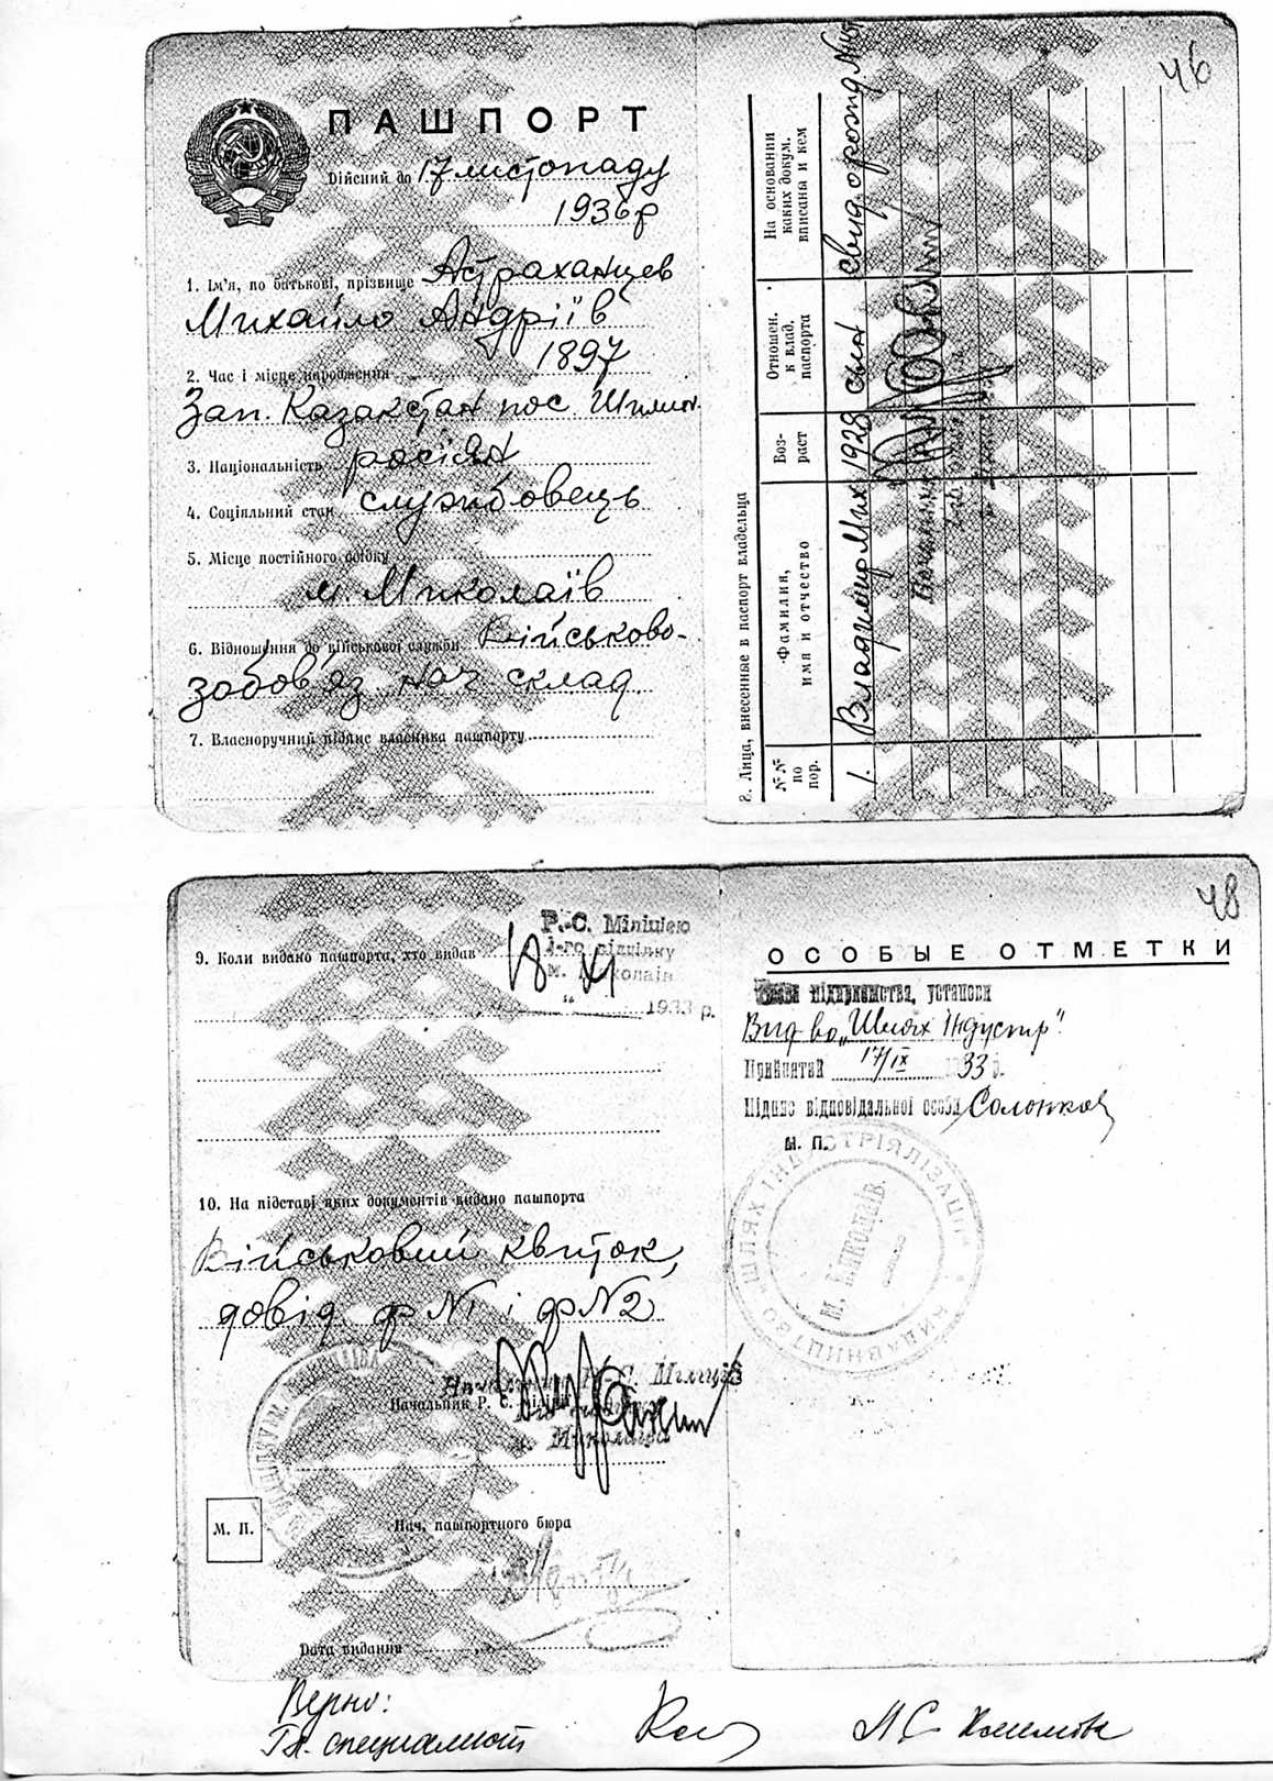 ПАШПОРТ
Дійсний до 17 листопаду
1936 р
1. Ім'я, по батькові, прізвище Астраханцев
Михайло Андріїв
2. Час і місце народження 1897
Зап. Казакстан пос.
3. Національність росіян
4. Соціяльний стан службовець
5. Місце постійного осідку
м. Миколаїв
6. Відношення до військової служби Військово-
зобов'яз нач склад
7. Власноручний підпис власника пашпорту
46
8. Лица, внесенные в паспорт владельца
№№ по пор.
Фамилия, имя и отчество
Воз-раст
Отношен. к влад. паспорта
На основании каких докум. вписаны и кем
1. Владимир Мих 1928 сын свид о рожд №
Начальник
9. Коли видано пашпорта, хто видав
Р.-С. Міліцією
1-го відділку
м. Миколаїв
18 XI 1933 р.
10. На підставі яких документів видано пашпорта
Військовий квиток,
довід. ф №1 і ф №2
Начальник Р. С. Міліції
Начальник Р. С. міліції
м. Миколаїва
М. П.
Нач. пашпортного бюра
Дата видання
48
ОСОБЫЕ ОТМЕТКИ
підприємства, установи
Вид во „Шлях Індустр".
Прийнятий 17/IX 33 р.
Підпис відповідальної особи
М. П.
ВИДАВНИЦТВО „ШЛЯХ ІНДУСТРІЯЛІЗАЦІЇ"
м. Миколаїв.
Верно:
Гл. специалист